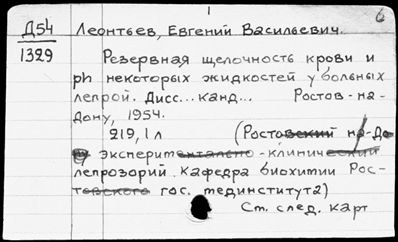 6
Д54 Леонтьев, Евгений Васильевич.
1329 Резервная щелочность крови и
ph некоторых жидкостей у больных
лепрой. Дисс... канд... Ростов-на-
Дону, 1954.
219, 1 л (Ростовский на-До
эксперитентально-клинический
лепрозорий. Кафедра биохитии Рос-
товского гос. тединститута)
Ст. след. карт